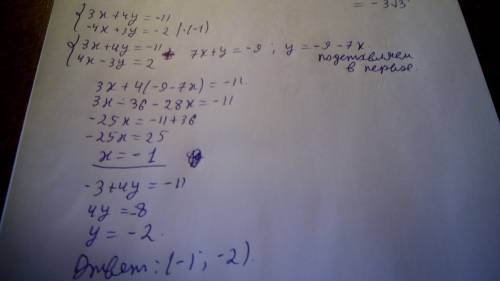 = -3√3
{3x+4y=-11
-4x+3y=-2 |·(-1)
{3x+4y=-11 + 7x+y=-9 ; y=-9-7x
4x-3y=2 подставляем
в первое.
3x+4(-9-7x)=-11
3x-36-28x=-11
-25x=-11+36
-25x=25
x=-1
-3+4y=-11
4y=-8
y=-2.
Ответ: (-1; -2).